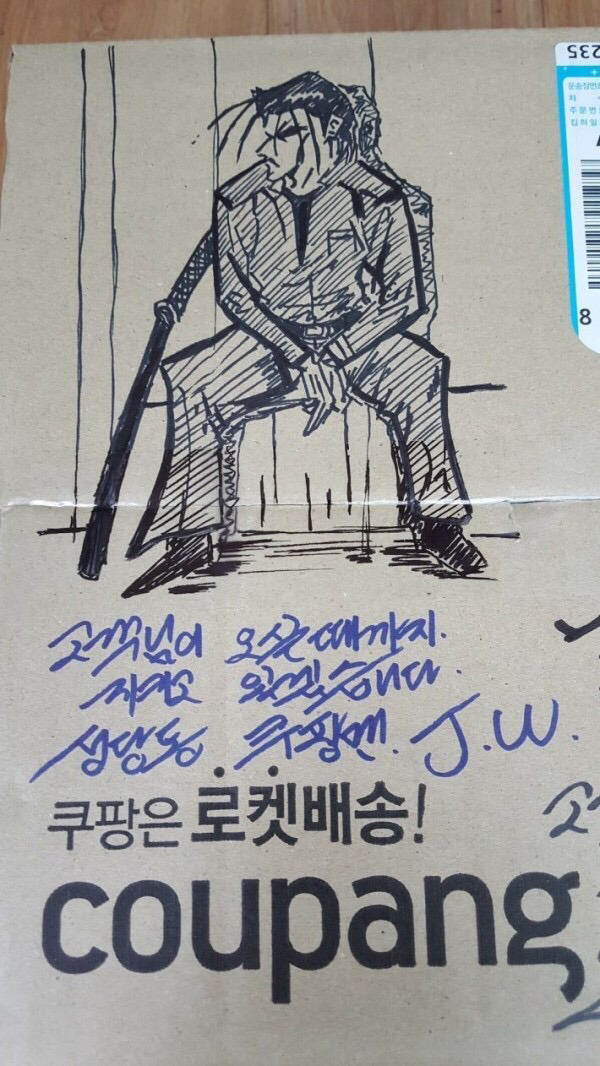 235
운송장번호
주문번
집하일
8
고객님이 오실때까지.
지키고 있겠습니다.
성당동 쿠팡맨. J.W.
쿠팡은 로켓배송!
coupang